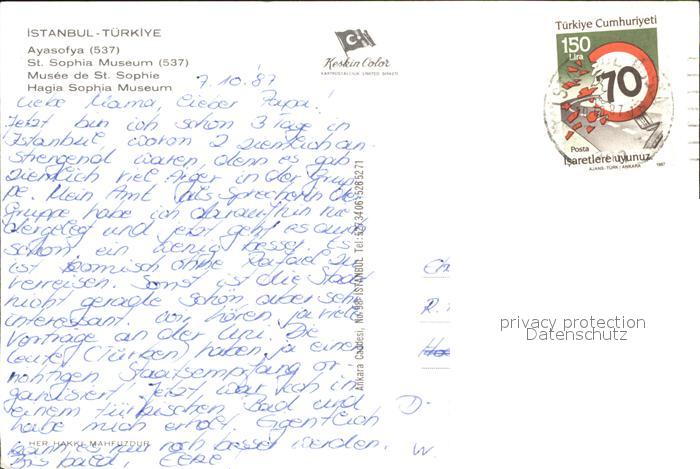 İSTANBUL - TÜRKİYE
Ayasofya (537)
St. Sophia Museum (537)
Musée de St. Sophie
Hagia Sophia Museum
Keskin Color
KARTPOSTALCILIK LIMITED ŞİRKETİ
Türkiye Cumhuriyeti
150
Lira
70
Posta
İşaretlere uyunuz.
AJANS-TÜRK / ANKARA 1987
7.10.87
Liebe Mama, Lieber Papa!
Jetzt bin ich schon 3 Tage in
Istanbul, wovon 2 ziemlich an-
strengend waren, denn es gab
ziemlich viel Ärger in der Grup-
pe. Mein Amt als Sprecherin der
Gruppe habe ich daraufhin nie-
dergelegt und jetzt geht es auch
schon ein wenig besser. Es
ist komisch ohne Rafael zu
verreisen. Sonst ist die Stadt
nicht gerade schön, aber sehr
interessant. Wir hören ja viele
Vorträge an der Uni. Die
Leute (Türken) haben ja einen
richtigen Staatsempfang or-
ganisiert. Jetzt war ich in
einem türkischen Bad und
habe mich erholt. Eigentlich
kann es nur noch besser werden.
Bis bald,
HER HAKKI MAHFUZDUR
Ankara Caddesi, No. 98 İSTANBUL Tel: 5273406 - 5285271
Ch
R.
D-
W.
privacy protection
Datenschutz